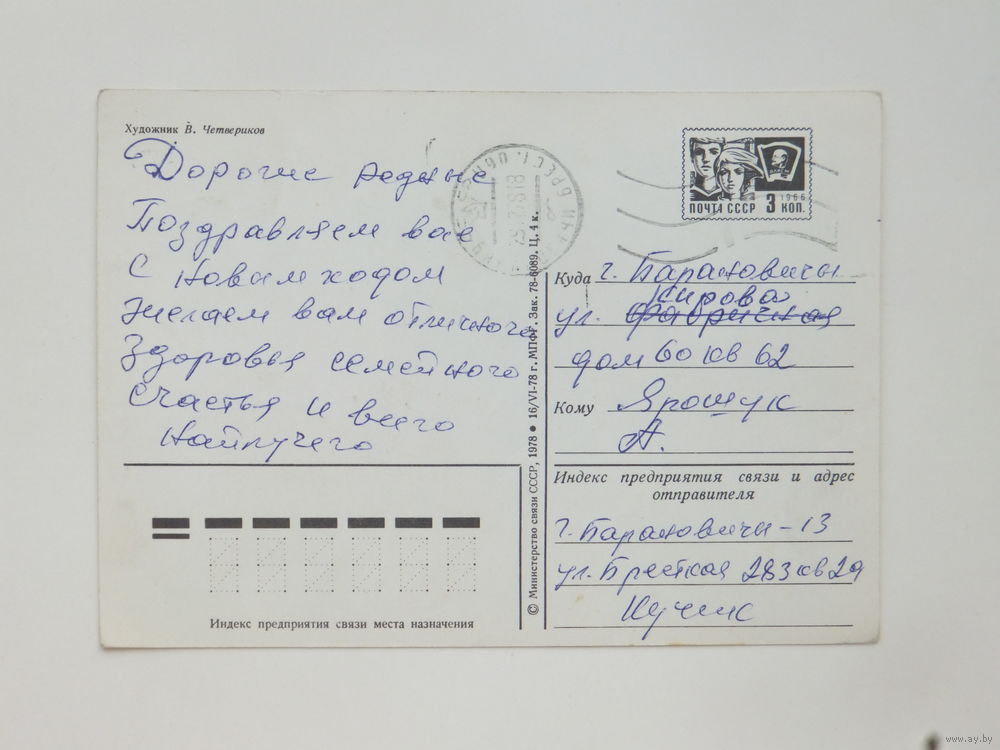 Художник В. Четвериков
Дорогие родные
Поздравляем вас
С Новым ходом
Желаем вам отличного
Здоровья семейного
Счастья и всего
Найлучего
Индекс предприятия связи места назначения
© Министерство связи СССР, 1978 ● 16/VI-78 г. МПФГ. Зак. 78-6089. Ц. 4 к.
БРЕСТ. ОБЛ
ПОЧТА СССР 3 КОП.
1966
Куда г. Барановичы
Кирова
ул. Фабричная
дом 60 кв 62
Кому Ярошук
А.
Индекс предприятия связи и адрес
отправителя
г. Барановичи-13
ул. Бресткая 283 кв 29
www.ay.by